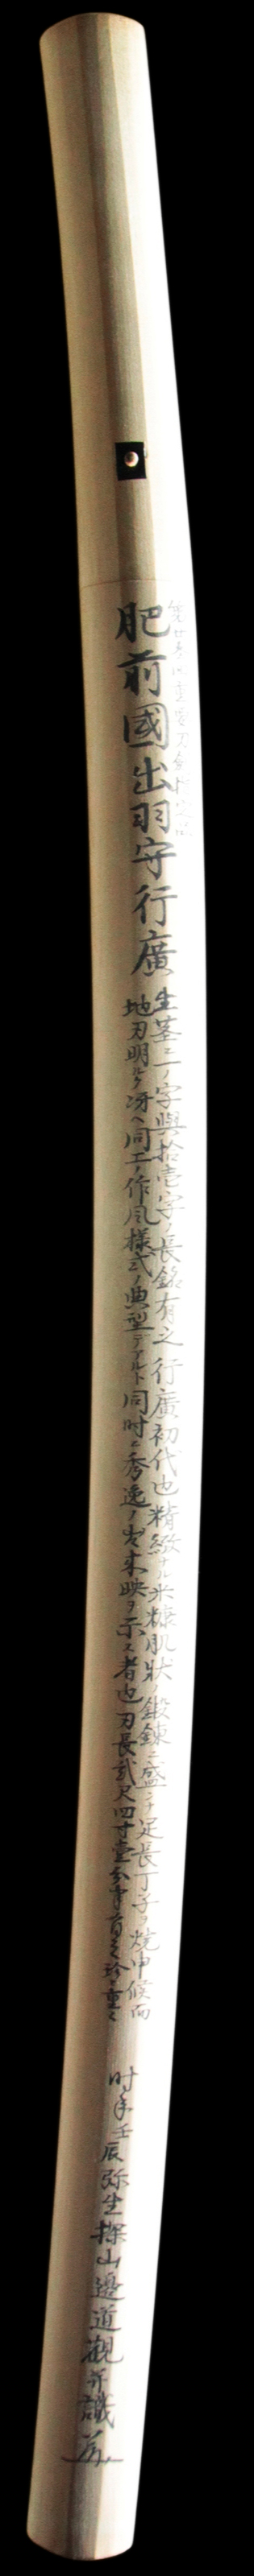 肥前國出羽守行廣
生茎ニ一ノ字與拾壱字ノ長銘有之行廣初代也精緻ナル米糠肌状ノ鍛錬ニ盛ニ足長丁子ヲ焼申候而
地刃明ルク冴ヘ同工ノ作風様式ノ典型デアルト同時ニ秀逸ノ出来映ヲ示ス者也刃長貮尺四寸壹分半有之珍々重々
时年壬辰弥生探山邉道觀并識